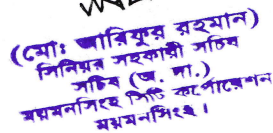 (মোঃ আরিফুর রহমান)
সিনিয়র সহকারী সচিব
সচিব (অ. দা.)
ময়মনসিংহ সিটি কর্পোরেশন
ময়মনসিংহ।